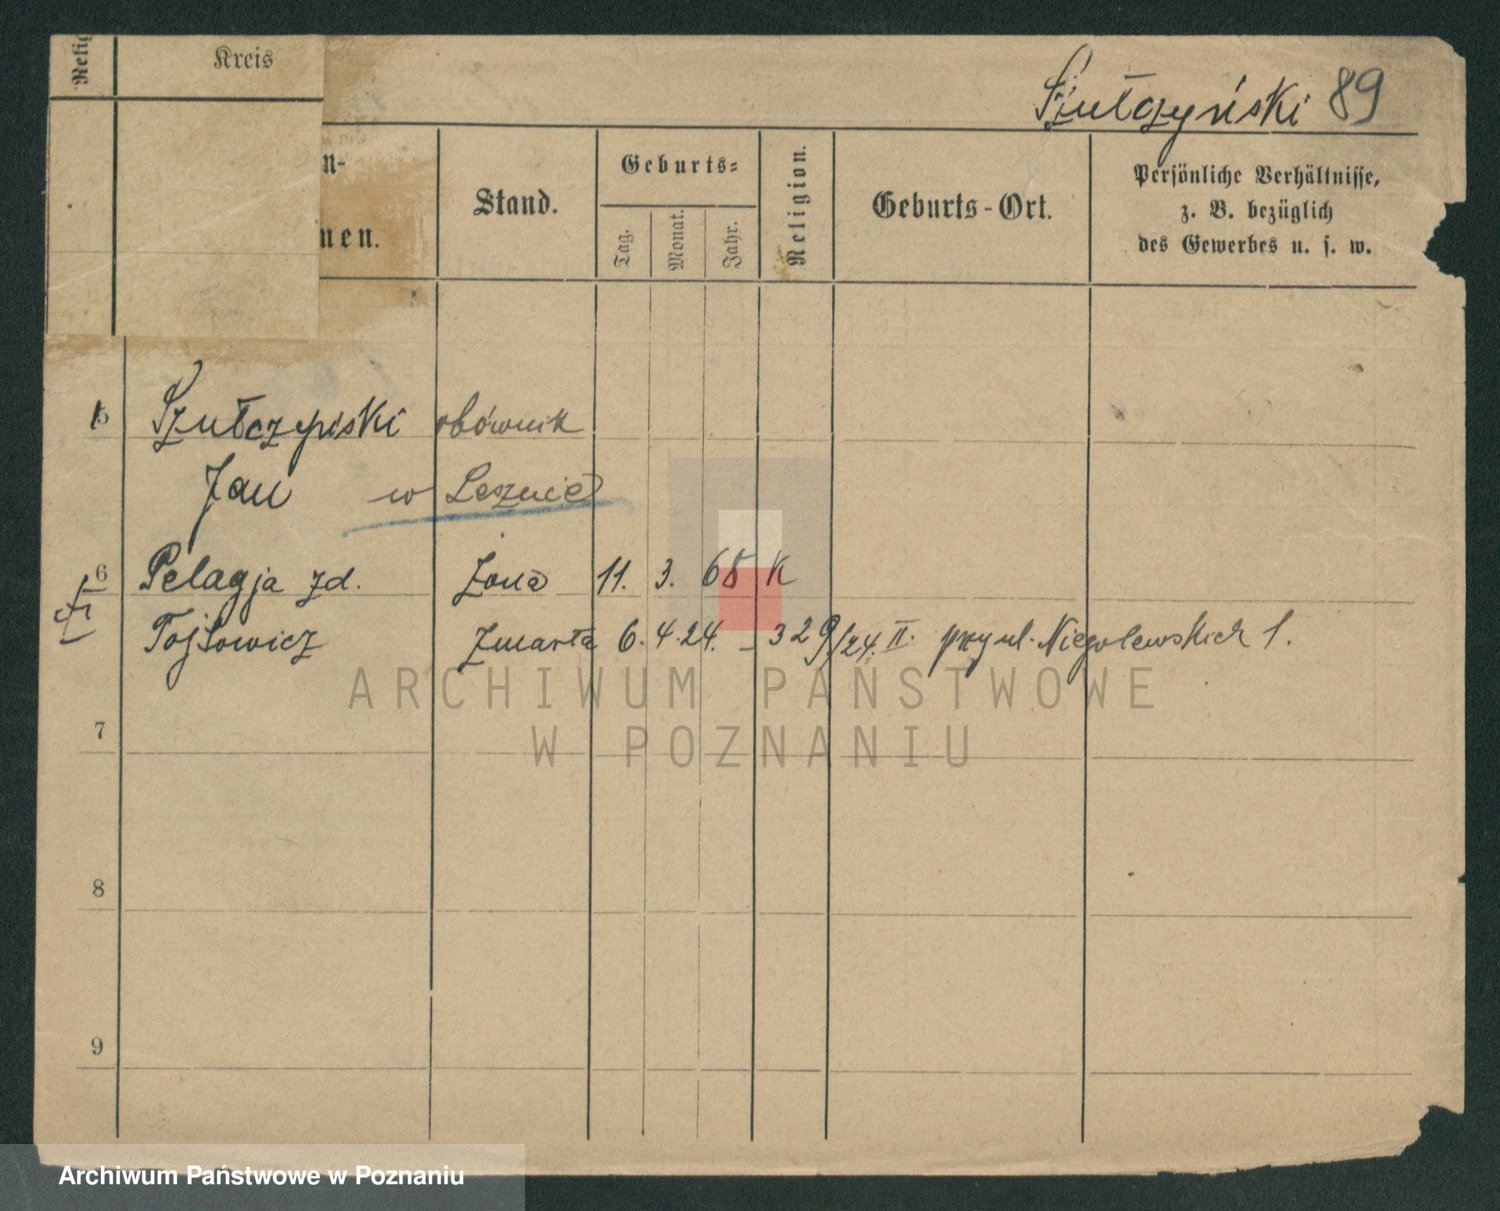 Relig
Kreis
Szułczyński 89
n-
nen.
Stand.
Geburts-
Tag.
Monat.
Jahr.
Religion.
Geburts-Ort.
Persönliche Verhältnisse,
z. B. bezüglich
des Gewerbes u. s. w.
5 Szułczyński obównik
Jan w Lesznie
6 Pelagja zd. żona 11. 3. 68 K
Tojtowicz zmarła 6.4.24. - 329/24. II. przy ul. Niegolewskich 1.
7
8
9
ARCHIWUM PAŃSTWOWE
W POZNANIU
Archiwum Państwowe w Poznaniu